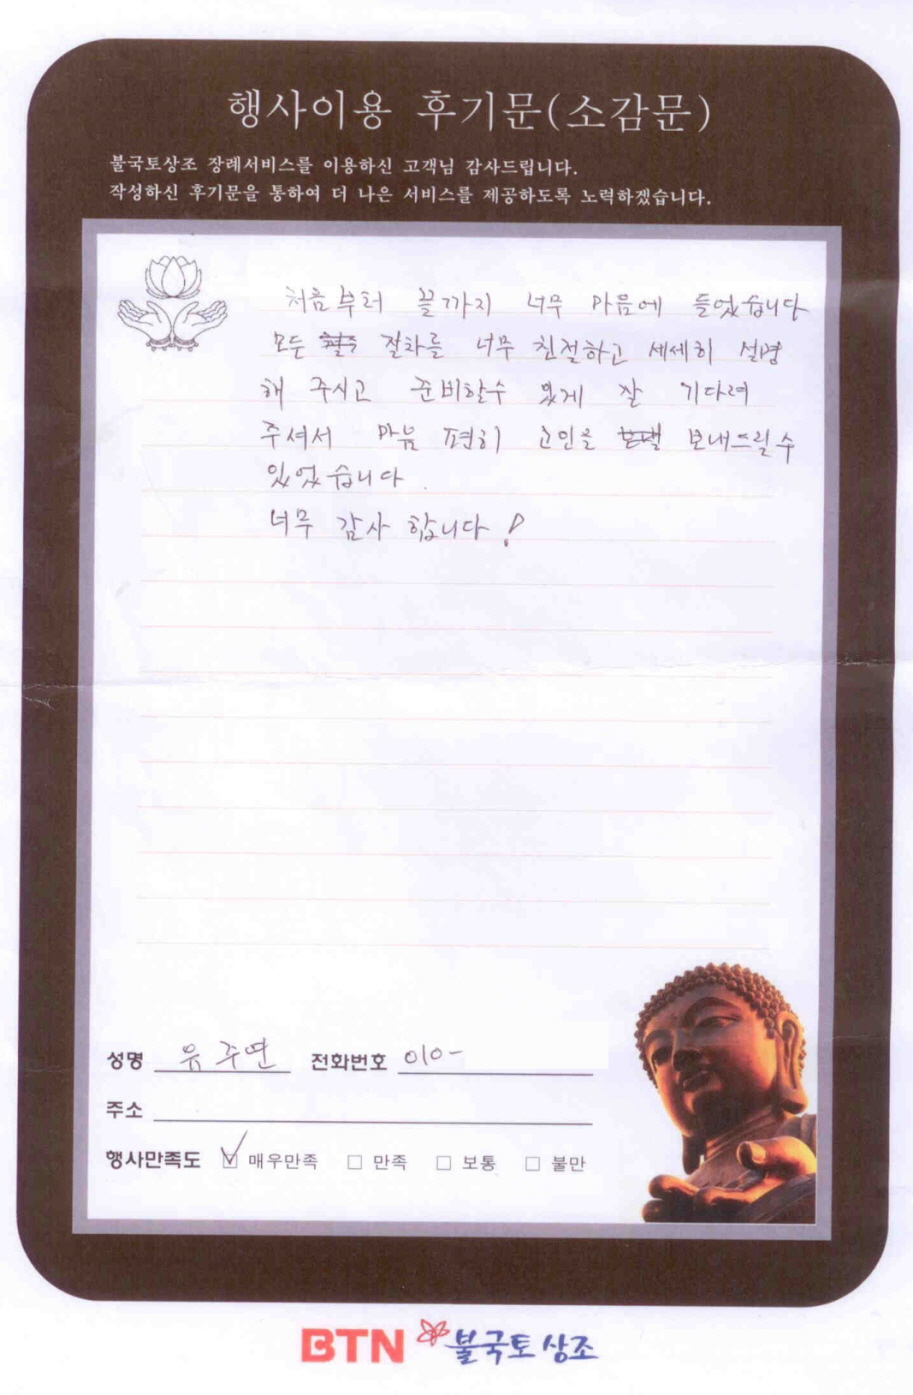 행사이용 후기문(소감문)
불국토상조 장례서비스를 이용하신 고객님 감사드립니다.
작성하신 후기문을 통하여 더 나은 서비스를 제공하도록 노력하겠습니다.
처음부터 끝까지 너무 마음에 들었습니다
모든 절차를 너무 친절하고 세세히 설명
해 주시고 준비할수 있게 잘 기다려
주셔서 마음 편히 고인을 보내드릴수
있었습니다.
너무 감사 합니다!
성명 유주연 전화번호 010-
주소
행사만족도 ☑ 매우만족 □ 만족 □ 보통 □ 불만
BTN 불국토상조